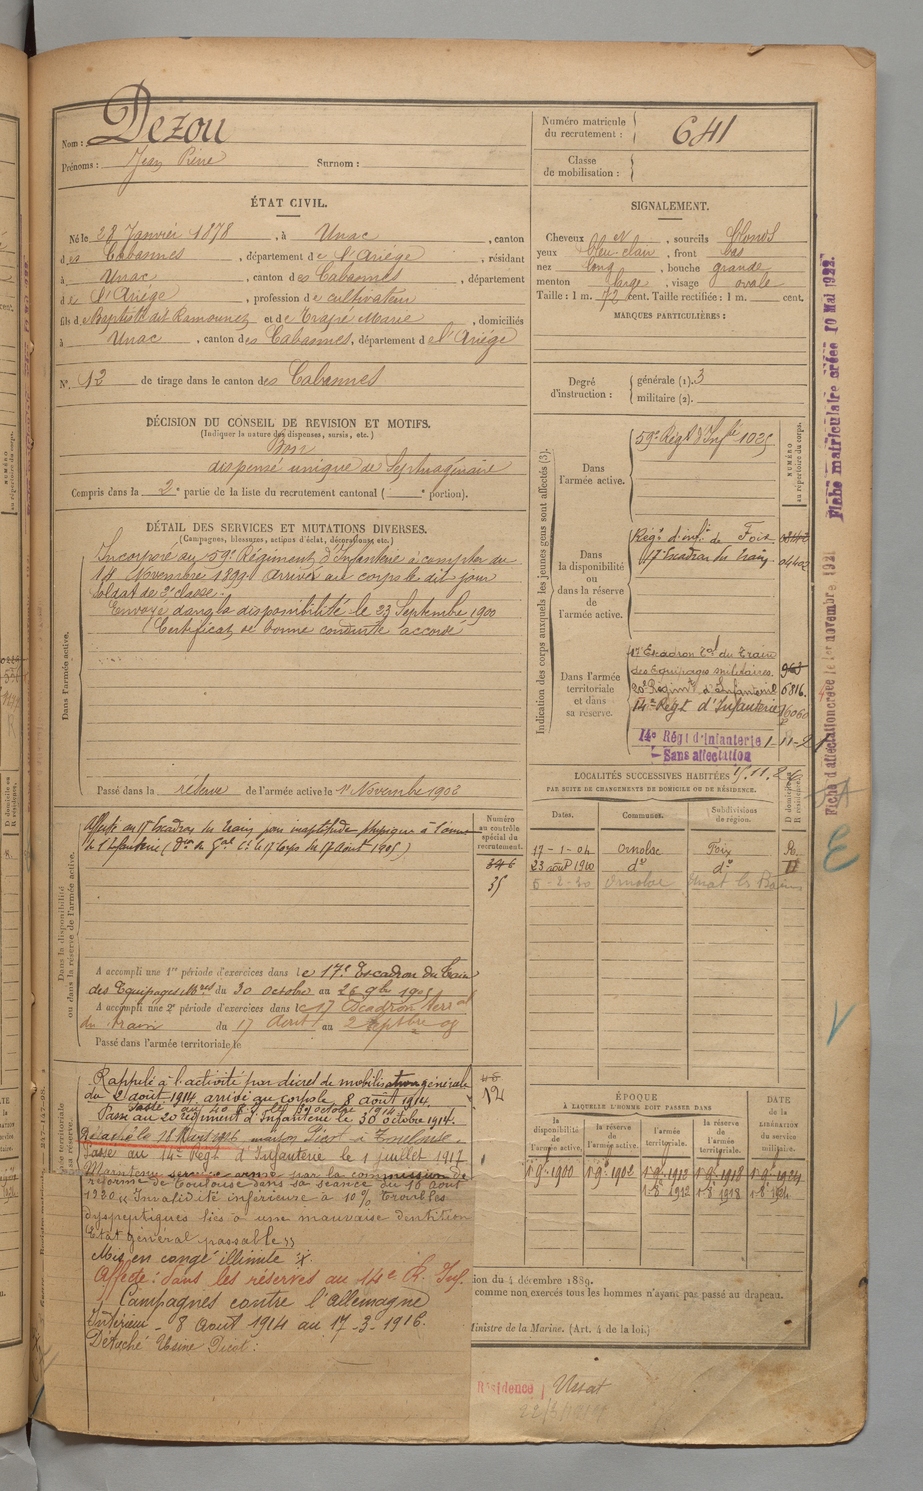 Nom : Dezou
Prénoms : Jean Pierre Surnom :
Numéro matricule du recrutement : 641
Classe de mobilisation :
ÉTAT CIVIL.
Né le 28 Janvier 1878, à Unac, canton
des Cabannes, département de l'Ariège, résidant
à Unac, canton des Cabannes, département
de l'Ariège, profession de cultivateur
fils de Baptiste dit Ramounet et de Trapé Marie, domiciliés
à Unac, canton des Cabannes, département de l'Ariège
N° 12 de tirage dans le canton des Cabannes
SIGNALEMENT.
Cheveux , sourcils blonds
yeux bleu clair, front bas
nez long, bouche grande
menton large, visage ovale
Taille : 1 m. 72 cent. Taille rectifiée : 1 m. cent.
MARQUES PARTICULIÈRES :
Degré d'instruction : générale (1). 3
militaire (2).
DÉCISION DU CONSEIL DE REVISION ET MOTIFS.
(Indiquer la nature des dispenses, sursis, etc.)
Bon
dispensé unique de Septuagénaire
Compris dans la 2e partie de la liste du recrutement cantonal ( e portion).
DÉTAIL DES SERVICES ET MUTATIONS DIVERSES.
(Campagnes, blessures, actions d'éclat, décorations, etc.)
Dans l'armée active.
Incorporé au 59e Régiment d'Infanterie à compter du
14 Novembre 1899. Arrivé au corps le dit jour
soldat de 2e classe.
Envoyé dans la disponibilité le 23 Septembre 1900
Certificat de bonne conduite accordé
Passé dans la réserve de l'armée active le 1er Novembre 1902
Indication des corps auxquels les jeunes gens sont affectés (3).
NUMÉRO au répertoire du corps.
Dans l'armée active.
59e Régt d'Infie 1025
Dans la disponibilité ou dans la réserve de l'armée active.
Régt d'infie de Foix
17 Escadron du train
Dans l'armée territoriale et dans sa réserve.
17 Escadron Tal du Train
des Equipages militaires
20e Régimt d'Infanterie 6816
14e Régt d'Infanterie 16060
14e Régt d'Infanterie
Sans affectation
LOCALITÉS SUCCESSIVES HABITÉES
PAR SUITE DE CHANGEMENTS DE DOMICILE OU DE RÉSIDENCE.
Dates. Communes. Subdivisions de région. D domicile R résidence.
17-1-04 Ornolac Foix R.
23 août 1910 do do
Ornolac Ussat les Bains
Dans la disponibilité ou dans la réserve de l'armée active.
Numéro au contrôle spécial du recrutement.
346
35
Affecté au 17 Escadron du train pour inaptitude physique à l'arme
A accompli une 1re période d'exercices dans le 17e Escadron du Train
des Equipages Mres du 30 octobre au 26 9bre 1905
A accompli une 2e période d'exercices dans le 17 Escadron terral
du train du 17 Août au 2 Septbre 08
Passé dans l'armée territoriale le
Rappelé à l'activité par décret de mobilisation générale
du 2 août 1914 arrivé au corps le 8 août 1914
Passé au 20 régiment d'Infanterie le 30 octobre 1914.
Détaché le 18 Mars 1916 maison Picot à Toulouse.
Passé au 14e Régt d'Infanterie le 1 juillet 1917
Maintenu service armé par la commission de
réforme de Toulouse dans sa séance du 16 août
1920 "Invalidité inférieure à 10% troubles
dyspeptiques liés à une mauvaise dentition
Etat général passable"
Mis en congé illimité
Affecté : dans les réserves au 14e R. Inf.
Campagnes contre l'Allemagne
Intérieur - 8 Août 1914 au 17-3-1916.
Détaché Usine Picot :
12
ÉPOQUE
À LAQUELLE L'HOMME DOIT PASSER DANS
la disponibilité de l'armée active.
la réserve de l'armée active.
l'armée territoriale.
la réserve de l'armée territoriale.
DATE de la LIBÉRATION du service militaire.
1 9bre 1900 1 9bre 1902
tion du 4 décembre 1889.
comme non exercés tous les hommes n'ayant pas passé au drapeau.
Ministre de la Marine. (Art. 4 de la loi.)
Résidence Ussat
Fiche matriculaire créée 10 Mai 1922.
Fiche d'affectation créée le 1er novembre 1921